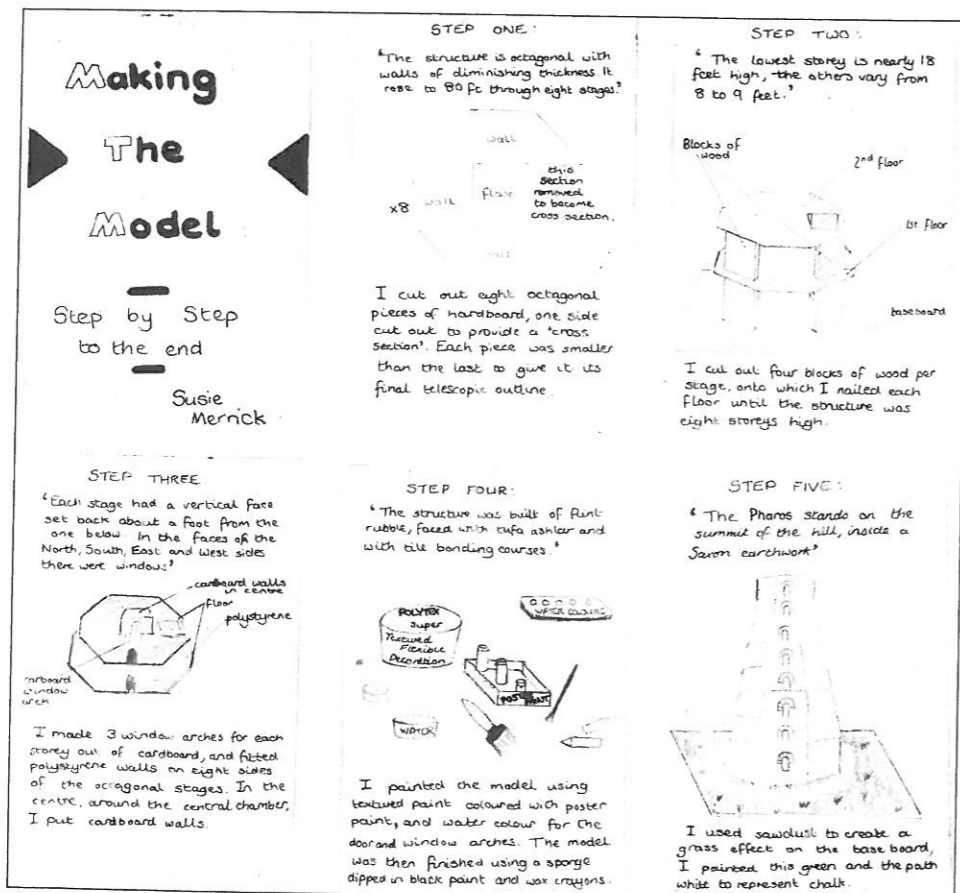 Making
The
Model
Step by Step
to the end
Susie
Merrick
STEP ONE:
'The structure is octagonal with
walls of diminishing thickness. It
rose to 80 ft through eight stages.'
wall
this
section
removed
to become
cross section.
floor
x8
wall
wall
I cut out eight octagonal
pieces of hardboard, one side
cut out to provide a 'cross
section'. Each piece was smaller
than the last to give it its
final telescopic outline.
STEP TWO:
' The lowest storey is nearly 18
feet high, the others vary from
8 to 9 feet.'
Blocks of
wood
2nd floor
1st floor
baseboard
I cut out four blocks of wood per
stage, onto which I nailed each
floor until the structure was
eight storeys high.
STEP THREE
'Each stage had a vertical face
set back about a foot from the
one below. In the faces of the
North, South, East and West sides
there were windows'
cardboard walls
in centre
floor
polystyrene
carboard
window
arch
I made 3 window arches for each
storey out of cardboard, and fitted
polystyrene walls on eight sides
of the octagonal stages. In the
centre, around the central chamber,
I put cardboard walls.
STEP FOUR:
'The structure was built of flint
rubble, faced with tufa ashlar and
with tile bonding courses.'
POLYTEX
super
Textured
Flexible
Decoration
WATER COLOURS
POST PAINT
WATER
I painted the model using
textured paint coloured with poster
paint, and water colour for the
door and window arches. The model
was then finished using a sponge
dipped in black paint and wax crayons.
STEP FIVE:
' The Pharos stands on the
summit of the hill, inside a
Saxon earthwork'
I used sawdust to create a
grass effect on the base board,
I painted this green and the path
white to represent chalk.